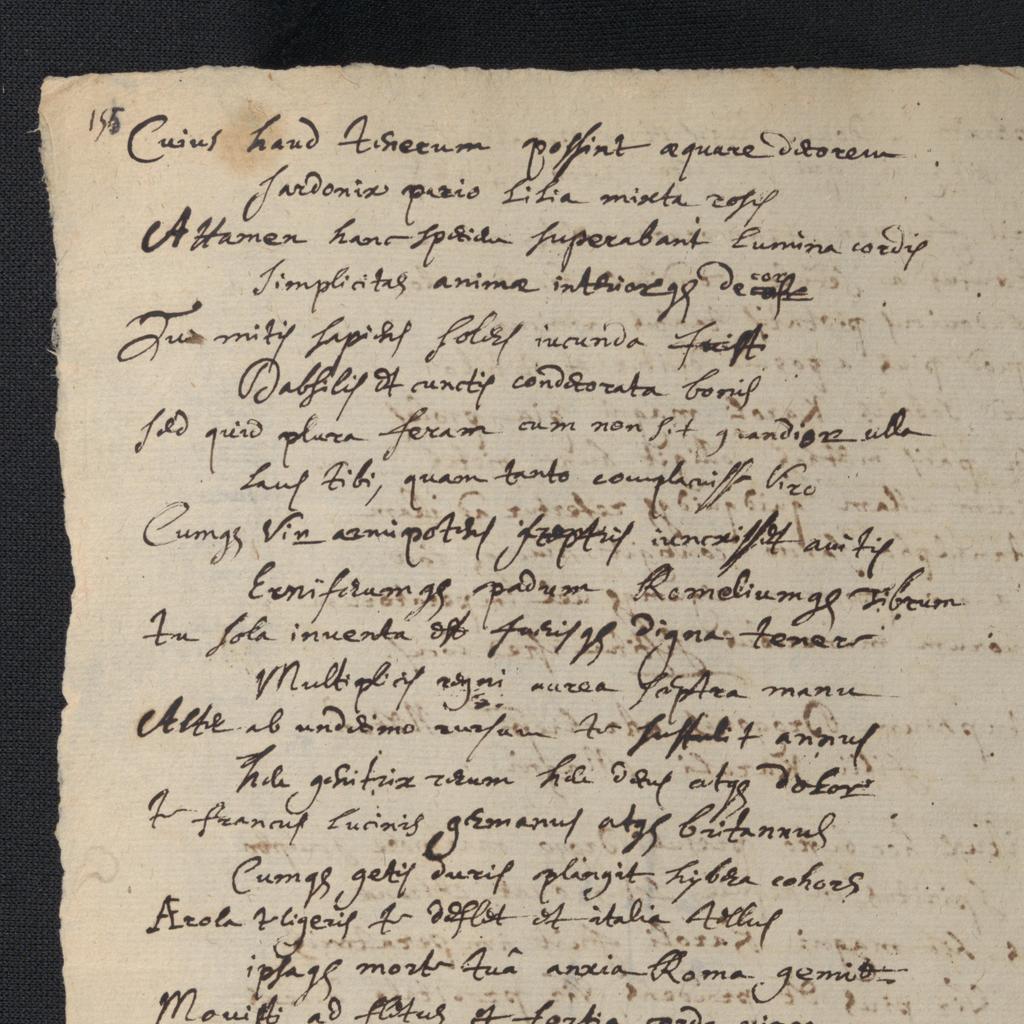 155 Cuius haud tenerum possint æquare decorem
Sardonix pario Lilia mixta rosis
Attamen hanc speciem superabant Lumina cordis
Simplicitas animæ interiorqȝ decor
Tu mitis sapiens solers iucunda fuisti
Dabsilis et cunctis condecorata bonis
sed quid plura feram cum non sit grandior ulla
Laus tibi, quam tanto complacuisse Viro
Cumqȝ Vir armipotens sceptris iuncxisset avitis
padum Romeliumqȝ Tibrum
tu sola inventa est fuerisqȝ digna tenere
Multiplicis regni aurea sceptra manu
Alter ab undecimo rursum te sustulit annus
heu genitrix regum heu decus atqȝ dolor
te francus germanus atqȝ britannus
Cumqȝ getis duris plangit hybera cohors
ligeris te deflet et italia tellus
ipsaqȝ morte tuâ anxia Roma gemit
Movisti ad fletus et fortia corda